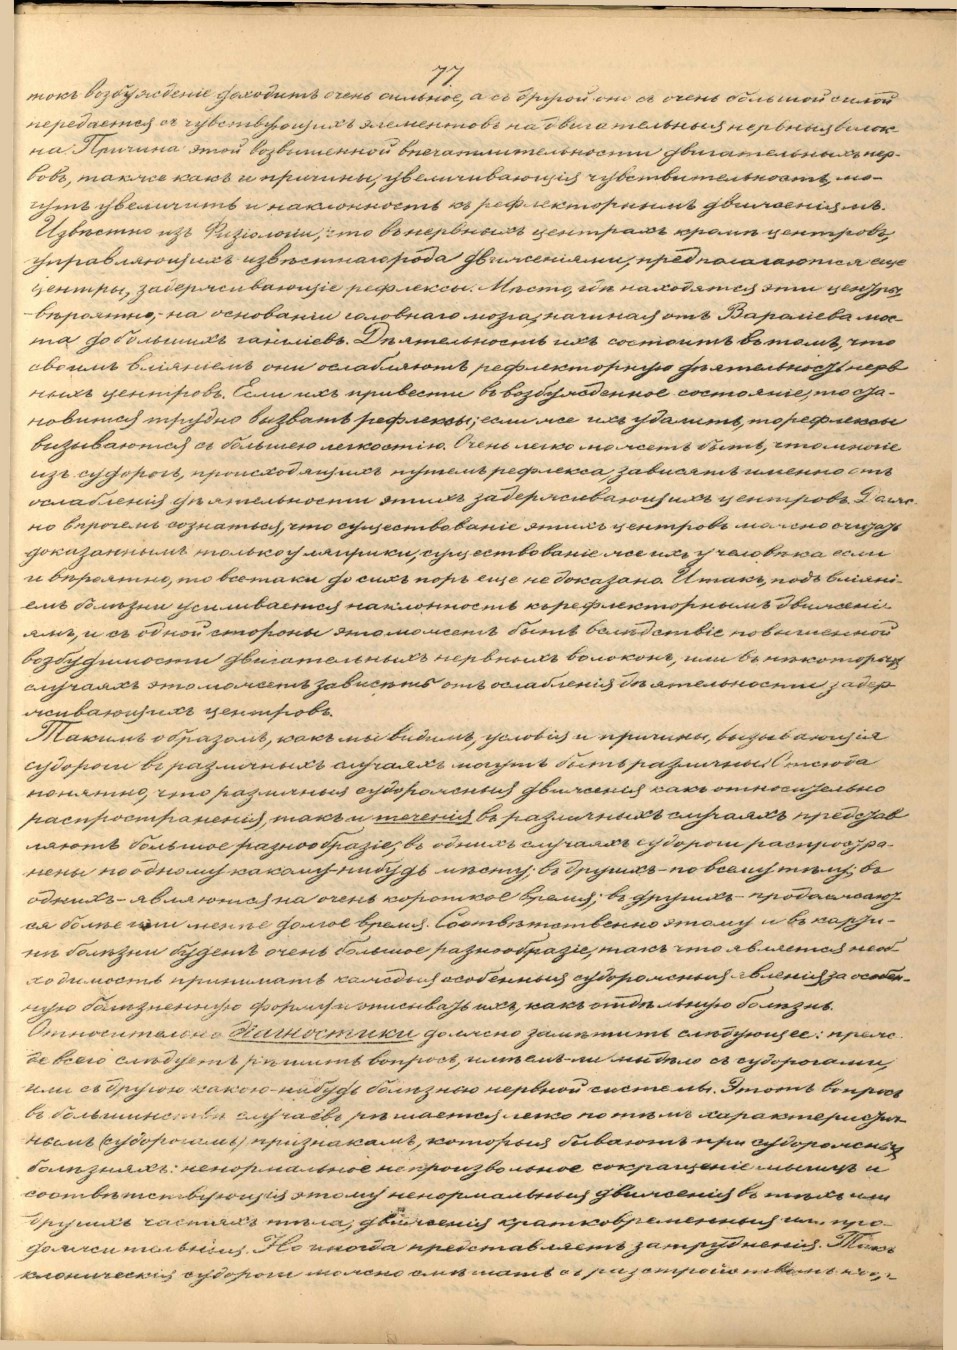 77
токъ возбужденіе доходитъ очень сильное, а съ другой онъ съ очень большой силой
передается съ чувствующихъ элементовъ на двигательныя нервныя волок-
на. Причина этой возвышенной впечатлительности двигательныхъ нер-
вовъ, также какъ и причины, увеличивающія чувствительность, мо-
гутъ увеличить и наклонность къ рефлекторнымъ движеніямъ.
Извѣстно изъ Физіологіи, что въ нервныхъ центрахъ кромѣ центровъ,
управляющихъ извѣстнаго рода движеніями, предполагаются еще
центры, задерживающіе рефлексы. Мѣсто, гдѣ находятся эти центры,
-вѣроятно,- на основаніи головнаго мозга, начиная отъ Вароліева мос-
та до большихъ гангліевъ. Дѣятельность ихъ состоитъ въ томъ, что
своимъ вліяніемъ они ослабляютъ рефлекторную дѣятельность нерв
ныхъ центровъ. Если ихъ привести въ возбужденное состояніе, то ста-
новится трудно вызвать рефлексы; если же ихъ удалить, то рефлексы
вызываются съ большею легкостію. Очень легко можетъ быть, что многіе
изъ судорогъ, происходящихъ путемъ рефлекса, зависятъ именно отъ
ослабленія дѣятельности этихъ задерживающихъ центровъ. Долж-
но впрочемъ сознаться, что существованіе этихъ центровъ можно считать
доказаннымъ только у лягушки, существованіе же ихъ у человѣка если
и вѣроятно, то все таки до сихъ поръ еще не доказано. И такъ, подъ вліяні-
емъ болѣзни усиливается наклонность къ рефлекторнымъ движені-
ямъ, и съ одной стороны это можетъ быть вслѣдствіе повышенной
возбудимости двигательныхъ нервныхъ волоконъ, или въ нѣкоторыхъ
случаяхъ это можетъ зависѣть отъ ослабленія дѣятельности задер-
живающихъ центровъ.
Такимъ образомъ, какъ мы видимъ, условія и причины, вызывающія
судороги въ различныхъ случаяхъ могутъ быть различны. Отсюда
понятно, что различныя судорожныя движенія какъ относительно
распространенія, такъ и теченія въ различныхъ случаяхъ представ
ляютъ большое разнообразіе; въ однихъ случаяхъ судороги распростра-
нены по одному какому-нибудь мѣсту; въ другихъ - по всему тѣлу; въ
однихъ - являются на очень короткое время; въ другихъ - продолжают
ся болѣе или менѣе долгое время. Соотвѣтственно этому и въ карти-
нѣ болѣзни будетъ очень большое разнообразіе, такъ что является необ
ходимость принимать каждыя особенныя судорожныя явленія за особен-
ную болѣзненную форму и описывать ихъ, какъ отдѣльную болѣзнь.
Относительно діагностики должно замѣтить слѣдующее: преж-
де всего слѣдуетъ рѣшить вопросъ, имѣемъ-ли мы дѣло съ судорогами,
или съ другою какою-нибудь болѣзнью нервной системы. Этотъ вопросъ
въ большинствѣ случаевъ рѣшается легко по тѣмъ характеристич-
нымъ (судорогамъ) признакамъ, которыя бываютъ при судорожныхъ
болѣзняхъ: ненормальное непроизвольное сокращеніе мышцъ и
соотвѣтствующія этому ненормальныя движенія въ тѣхъ или
другихъ частяхъ тѣла; движенія кратковременныя или про-
должительныя. Но иногда представляетъ затрудненія. Такъ
клоническія судороги можно смѣшать съ разстройствомъ